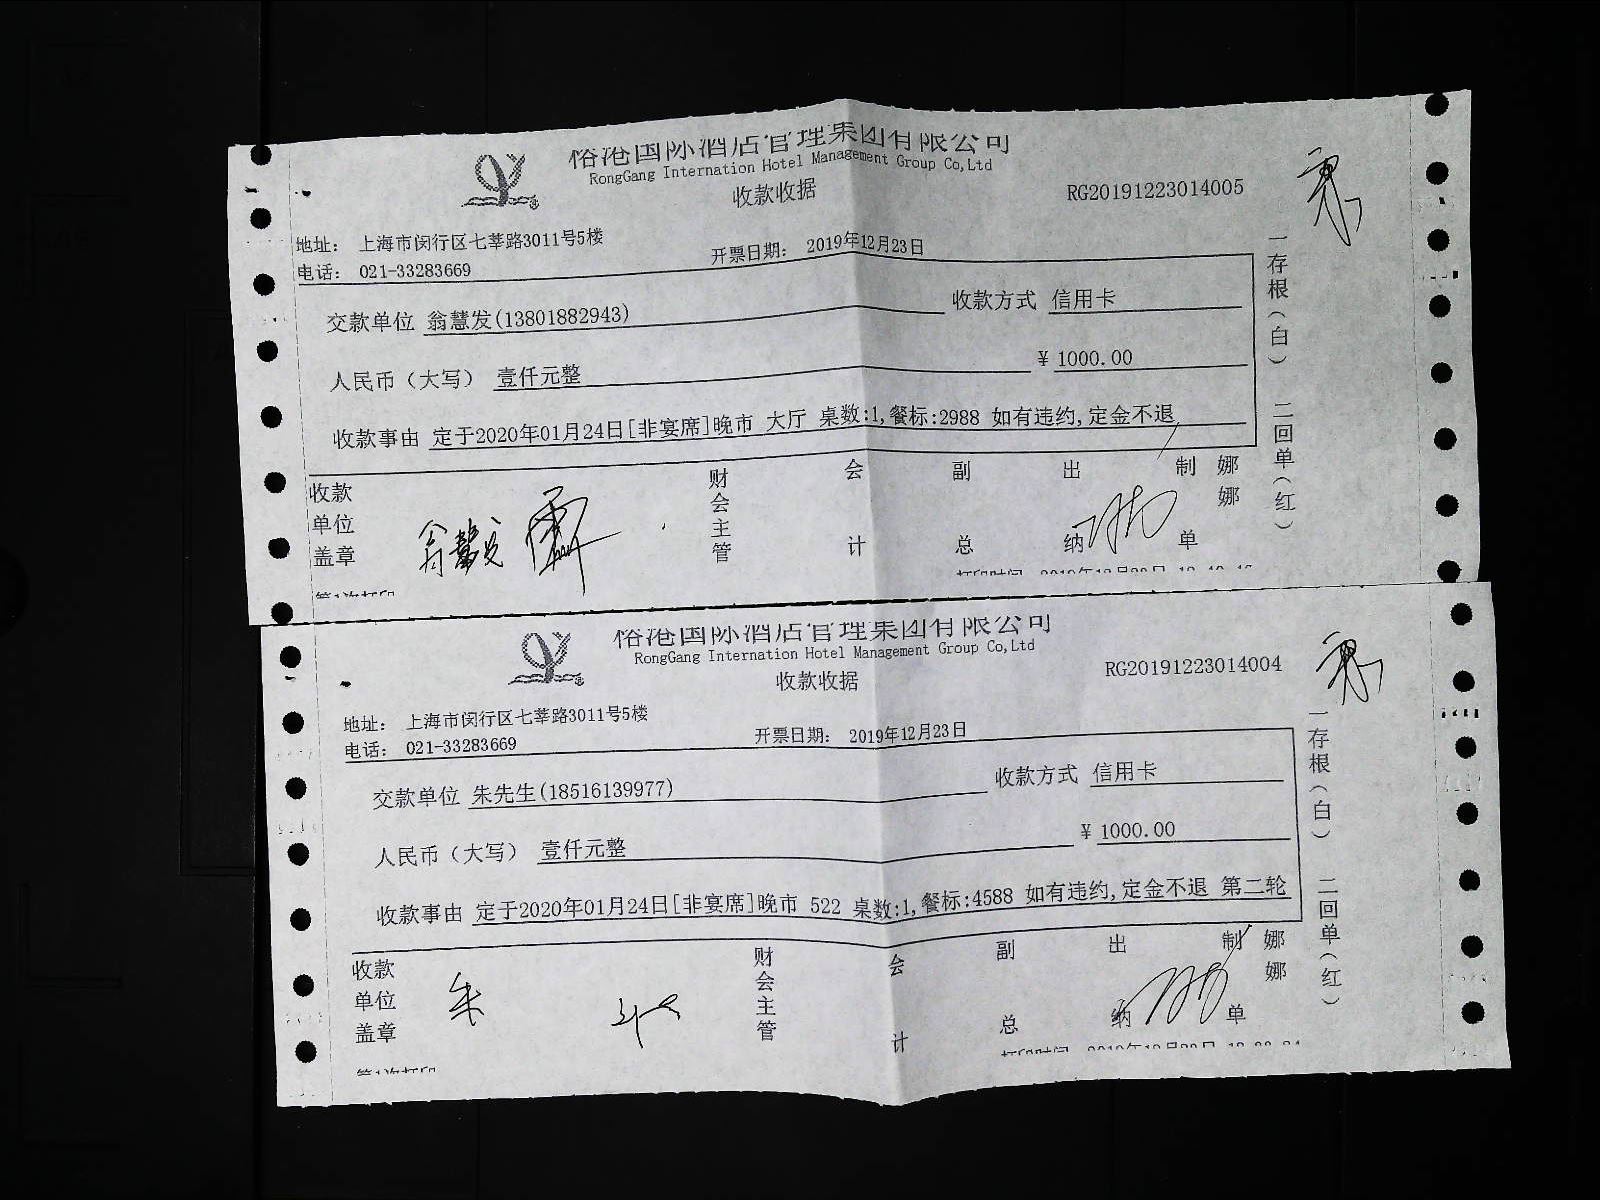 裕港国际酒店管理集团有限公司
RongGang Internation Hotel Management Group Co,Ltd
收款收据
RG20191223014005
地址： 上海市闵行区七莘路3011号5楼
电话： 021-33283669
开票日期： 2019年12月23日
交款单位 翁慧发(13801882943) 收款方式 信用卡
人民币（大写） 壹仟元整 ¥ 1000.00
收款事由 定于2020年01月24日[非宴席]晚市 大厅 桌数:1,餐标:2988 如有违约,定金不退
一存根（白） 二回单（红）
收款单位盖章 翁慧发 财会主管 会计 副总 出纳 制单 娜娜
第1次打印
裕港国际酒店管理集团有限公司
RongGang Internation Hotel Management Group Co,Ltd
收款收据
RG20191223014004
地址： 上海市闵行区七莘路3011号5楼
电话： 021-33283669
开票日期： 2019年12月23日
交款单位 朱先生(18516139977) 收款方式 信用卡
人民币（大写） 壹仟元整 ¥ 1000.00
收款事由 定于2020年01月24日[非宴席]晚市 522 桌数:1,餐标:4588 如有违约,定金不退 第二轮
一存根（白） 二回单（红）
收款单位盖章 朱 财会主管 会计 副总 出纳 制单 娜娜
第1次打印